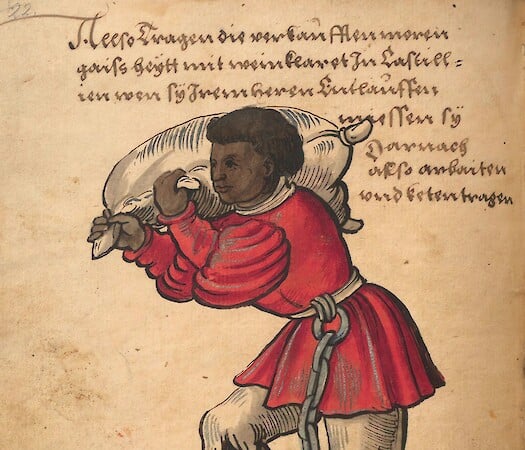 22
Allso Tragen die verkaufften moren
gaiss heytt mit wein klaret In Castill=
ien wen sy Irem heren Entlauffen
miessen sy
Darnach
allso arbaiten
vnd keten tragen